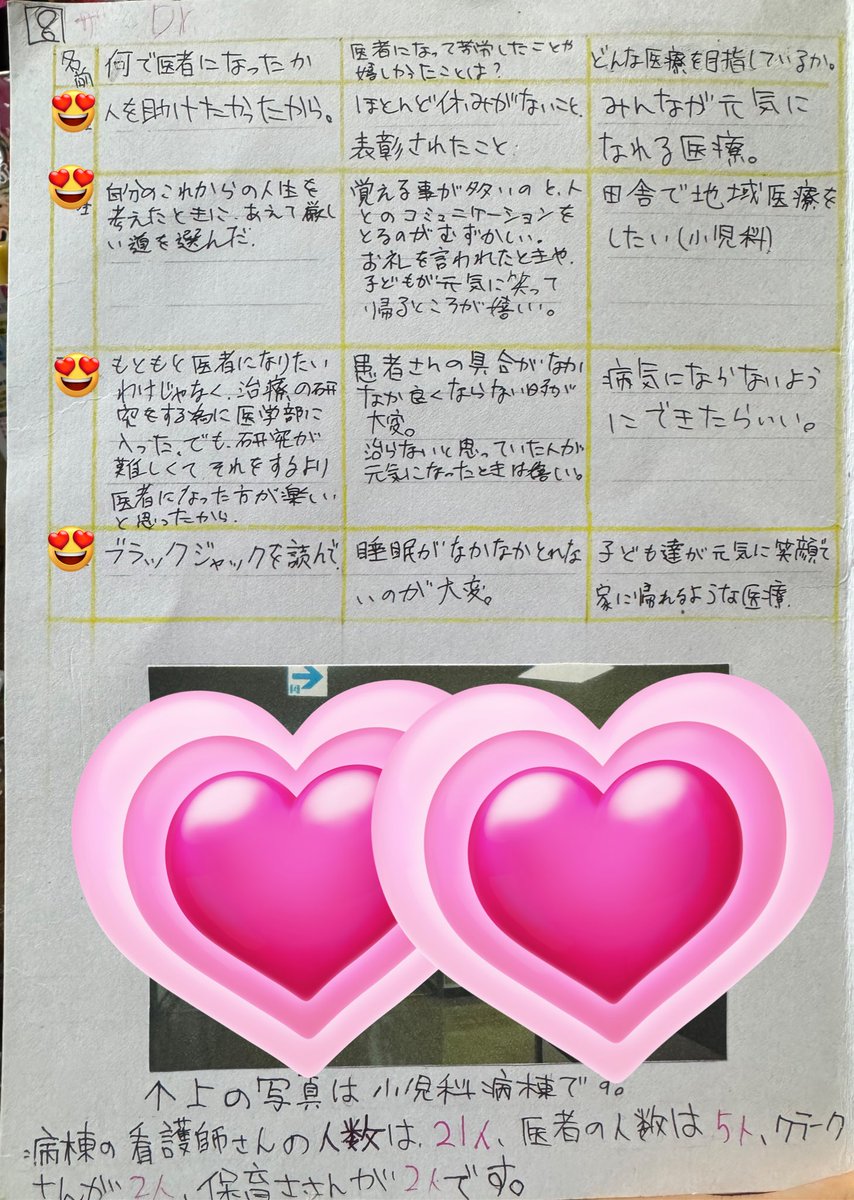 8 Dr.
名前
何で医者になったか
医者になって苦労したことや
嬉しかったことは？
どんな医療を目指しているか。
人を助けたかったから。
ほとんど休みがないこと、
表彰されたこと.
みんなが元気に
なれる医療。
自分のこれからの人生を
考えたときに、あえて厳し
い道を選んだ.
覚える事が多いのと、人
とのコミュニケーションを
とるのがむずかしい。
お礼を言われたときや、
子どもが元気に笑って
帰るところが嬉しい。
田舎で地域医療を
したい(小児科)
もともと医者になりたい
わけじゃなく、治療の研
究をする為に医学部に
入った、でも、研究が
難しくて、それをするより
医者になった方が楽しい
と思ったから.
患者さんの具合がなか
なか良くならない時が
大変。
治らないと思っていた人が
元気になったときは嬉しい。
病気にならないよう
にできたらいい。
ブラックジャックを読んで
睡眠がなかなかとれな
いのが大変。
子ども達が元気に笑顔で
家に帰れるような医療.
↑上の写真は小児科病棟です。
病棟の看護師さんの人数は、21人、医者の人数は5人、クラーク
さんが2人、保育士さんが2人です。